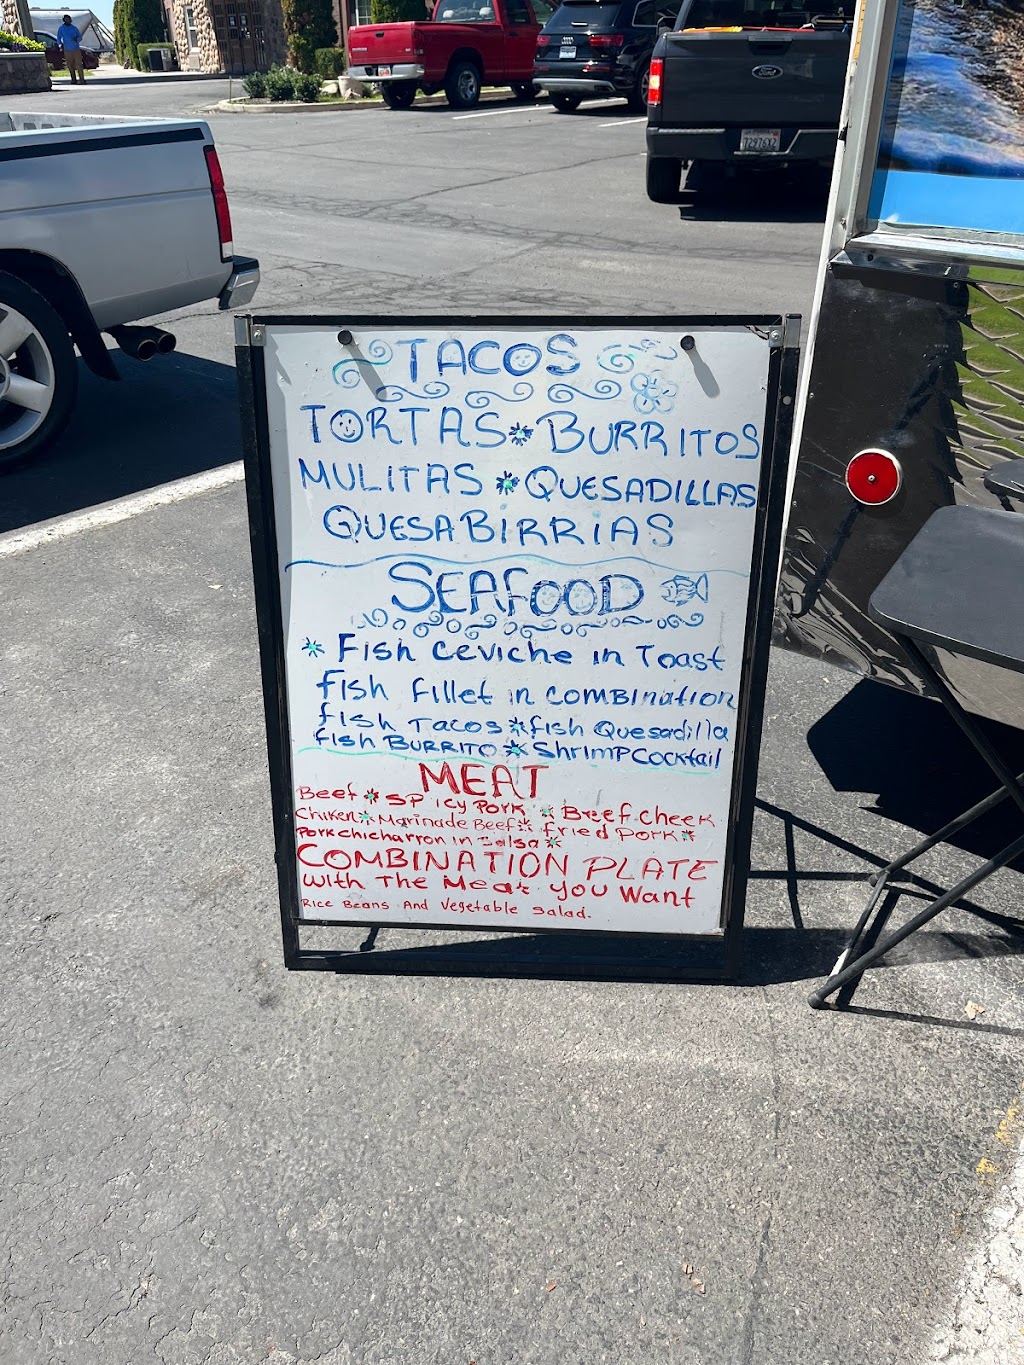 TACOS
TORTAS * BURRITOS
MULITAS * QUESADILLAS
QUESABIRRIAS
SEAFOOD
* Fish ceviche in Toast
fish fillet in combination
fish Tacos * fish Quesadilla
fish BURRITO * Shrimp Cocktail
MEAT
Beef * Spicy Pork * Beef cheek
Chiken * Marinade Beef * fried Pork *
Pork chicharron in Salsa *
COMBINATION PLATE
With The Meat you Want
Rice Beans And Vegetable Salad.
Ford